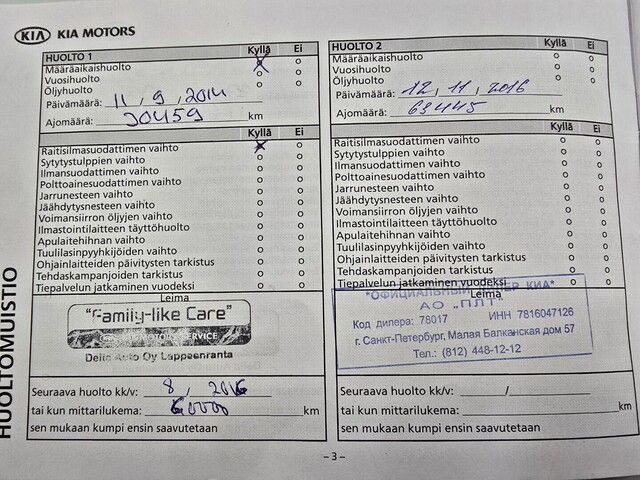 KIA KIA MOTORS
HUOLTO 1 Kyllä Ei
Määräaikaishuolto x o
Vuosihuolto o o
Öljyhuolto o o
Päivämäärä: 11, 9, 2014
Ajomäärä: 30459 km
Kyllä Ei
Raitisilmasuodattimen vaihto x o
Sytytystulppien vaihto o o
Ilmansuodattimen vaihto o o
Polttoainesuodattimen vaihto o o
Jarrunesteen vaihto o o
Jäähdytysnesteen vaihto o o
Voimansiirron öljyjen vaihto o o
Ilmastointilaitteen täyttöhuolto o o
Apulaitehihnan vaihto o o
Tuulilasinpyyhkijöiden vaihto o o
Ohjainlaitteiden päivitysten tarkistus o o
Tehdaskampanjoiden tarkistus o o
Tiepalvelun jatkaminen vuodeksi o o
Leima
"Family-like Care"
SERVICE
Delta Auto Oy Lappeenranta
Seuraava huolto kk/v: 8, 2016
tai kun mittarilukema: 60000 km
sen mukaan kumpi ensin saavutetaan
HUOLTO 2 Kyllä Ei
Määräaikaishuolto o o
Vuosihuolto o o
Öljyhuolto o o
Päivämäärä: 12, 11, 2016
Ajomäärä: 63445 km
Kyllä Ei
Raitisilmasuodattimen vaihto o o
Sytytystulppien vaihto o o
Ilmansuodattimen vaihto o o
Polttoainesuodattimen vaihto o o
Jarrunesteen vaihto o o
Jäähdytysnesteen vaihto o o
Voimansiirron öljyjen vaihto o o
Ilmastointilaitteen täyttöhuolto o o
Apulaitehihnan vaihto o o
Tuulilasinpyyhkijöiden vaihto o o
Ohjainlaitteiden päivitysten tarkistus o o
Tehdaskampanjoiden tarkistus o o
Tiepalvelun jatkaminen vuodeksi o o
Leima
"ОФИЦИАЛЬНЫЙ ДИЛЕР КИА"
АО „ПЛТ"
Код дилера: 78017 ИНН 7816047126
г. Санкт-Петербург, Малая Балканская дом 57
Тел.: (812) 448-12-12
Seuraava huolto kk/v: /
tai kun mittarilukema: km
sen mukaan kumpi ensin saavutetaan
HUOLTOMUISTIO
– 3 –